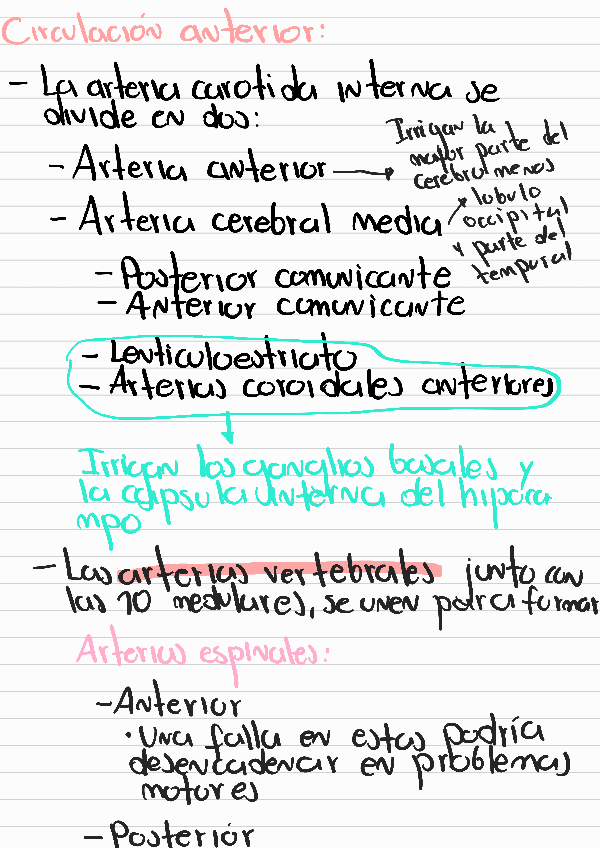 Circulación anterior:
- La arteria carotida interna se
divide en dos:
- Arteria anterior
Irrigan la
mayor parte del
cerebro menos
lobulo
occipital
y parte del
temporal
- Arteria cerebral media
- Posterior comunicante
- Anterior comunicante
- Lenticuloestriato
- Arterias coroidales anteriores
Irrigan los ganglios basales y
la capsula interna del hipoca
mpo
- Las arterias vertebrales junto con
las 10 medulares, se unen para formar
Arterias espinales:
- Anterior
· Una falla en estas podría
desencadenar en problemas
motores
- Posterior